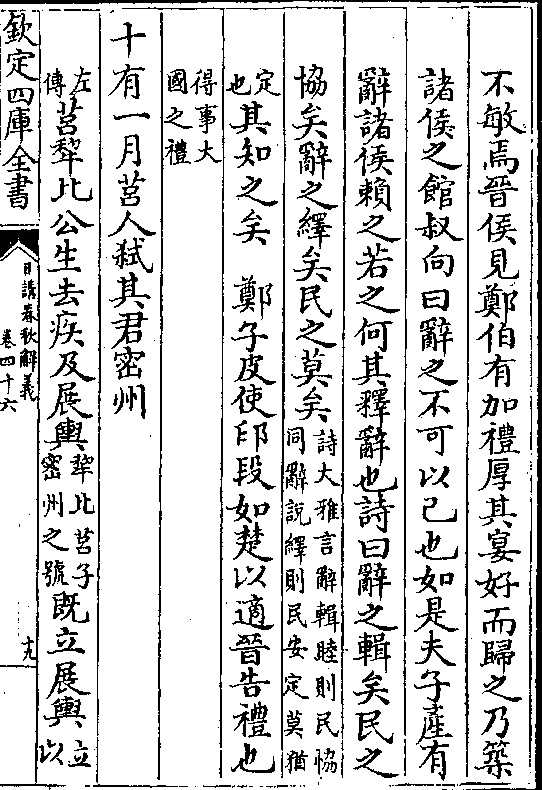 不敏焉晉侯見鄭伯有加禮厚其宴好而歸之乃築
諸侯之館叔向曰辭之不可以已也如是夫子產有
辭諸侯賴之若之何其釋辭也詩曰辭之輯矣民之
協矣辭之繹矣民之莫矣詩大雅言辭輯睦則民恊
同辭說繹則民安定莫猶
定
也其知之矣　鄭子皮使印段如楚以適晉告禮也
得事大
國之禮
十有一月莒人弑其君密州
左
傳莒犂比公生去疾及展輿犂比莒子
密州之號既立展輿立
以
欽定四庫全書
日講春秋解義
卷四十六
十九